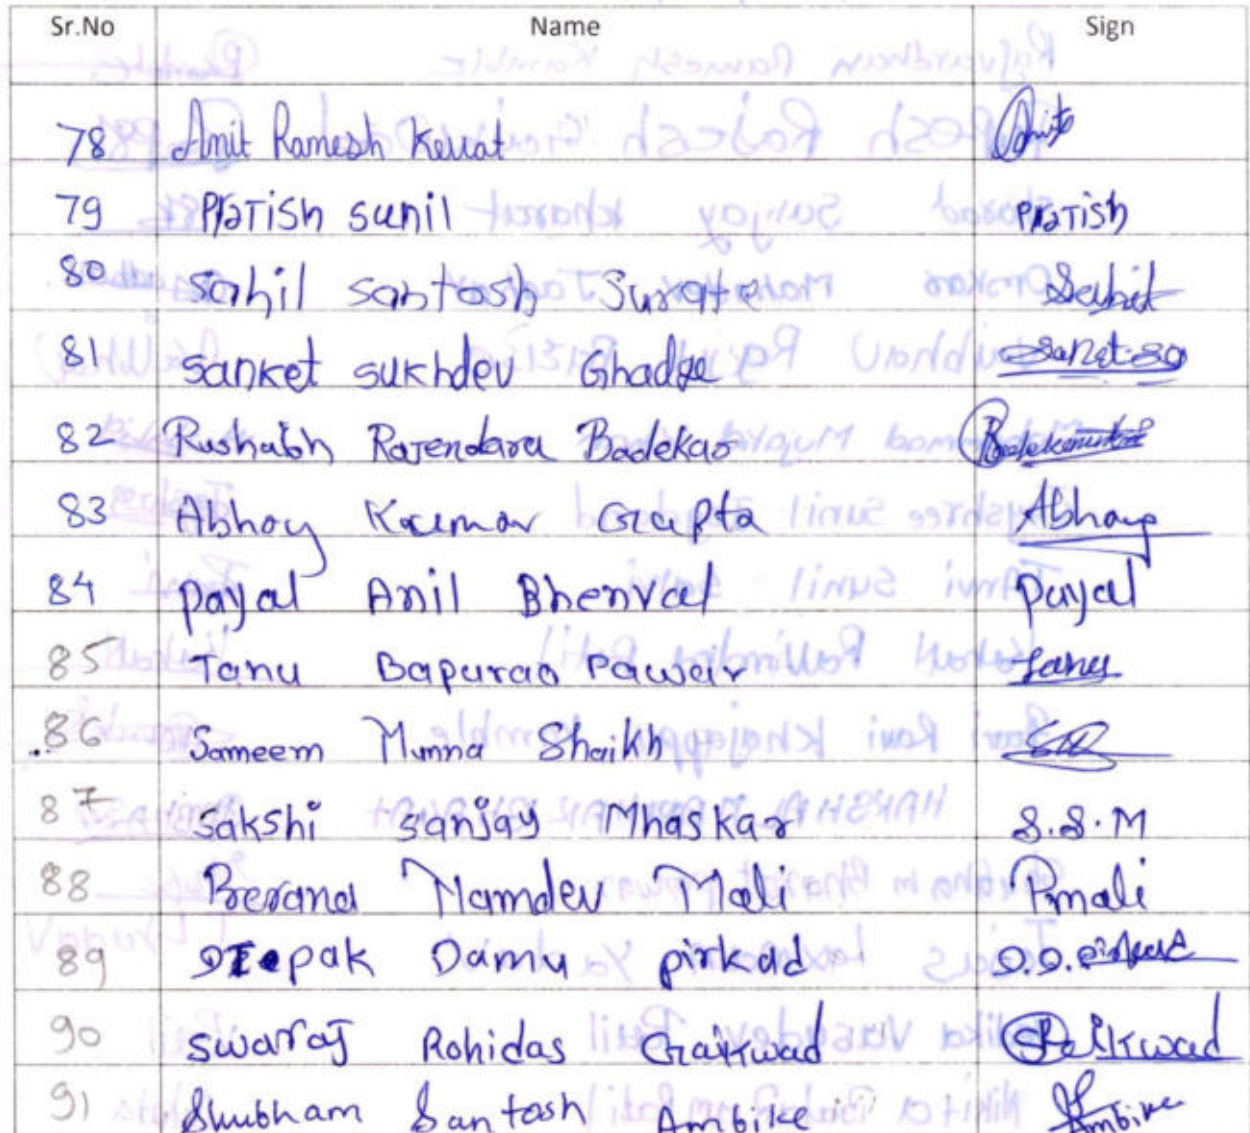 Sr.No Name Sign
78 Amit Ramesh Kerrat Amit
79 PRaTiSh sunil PRaTiSh
80 Sahil santosh Surate Sahil
81 Sanket sukhdev Ghadge
82 Rushabh Rajendara Badekar
83 Abhay Kumar Gupta Abhay
84 payal Anil Bhenval Payal
85 Tanu Bapurao Pawar Tanu
86 Sameem Munna Shaikh
87 Sakshi sanjay Mhaskar S.S.M
88 Prerana Namdev Mali Pmali
89 DIepak Damu pirkad D.D.
90 swaraj Rohidas Gaikwad Gaikwad
91 Shubham Santosh Ambike Ambike